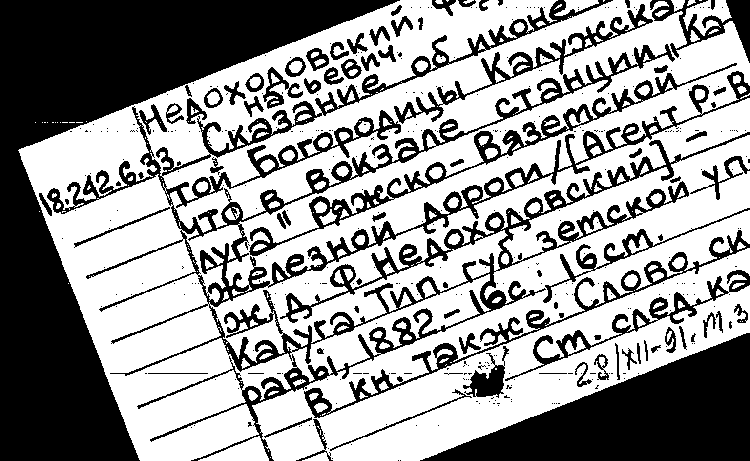 Недоходовский, Фед
насьевич.
Сказание об иконе
18.242.6.33.
той Богородицы Калужска
что в вокзале станции "Ка-
луга" Ряжско-Вяземской
железной дороги /[Агент Р.-В
ж. д. Ф. Недоходовский]. –
Калуга: Тип. губ. земской уп-
равы, 1882.- 16с.; 16 ст.
В кн. также: Слово, ск
Ст. след. ка
28/XII-91. т.3